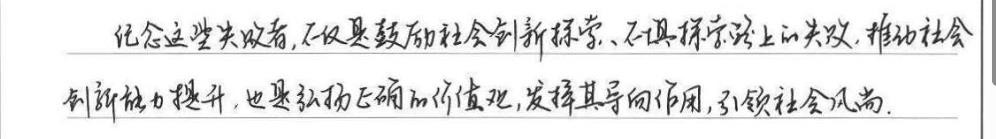 纪念这些失败者,不仅是鼓励社会创新探索、不惧探索路上的失败,推动社会
创新能力提升,也是弘扬正确的价值观,发挥其导向作用,引领社会风尚.